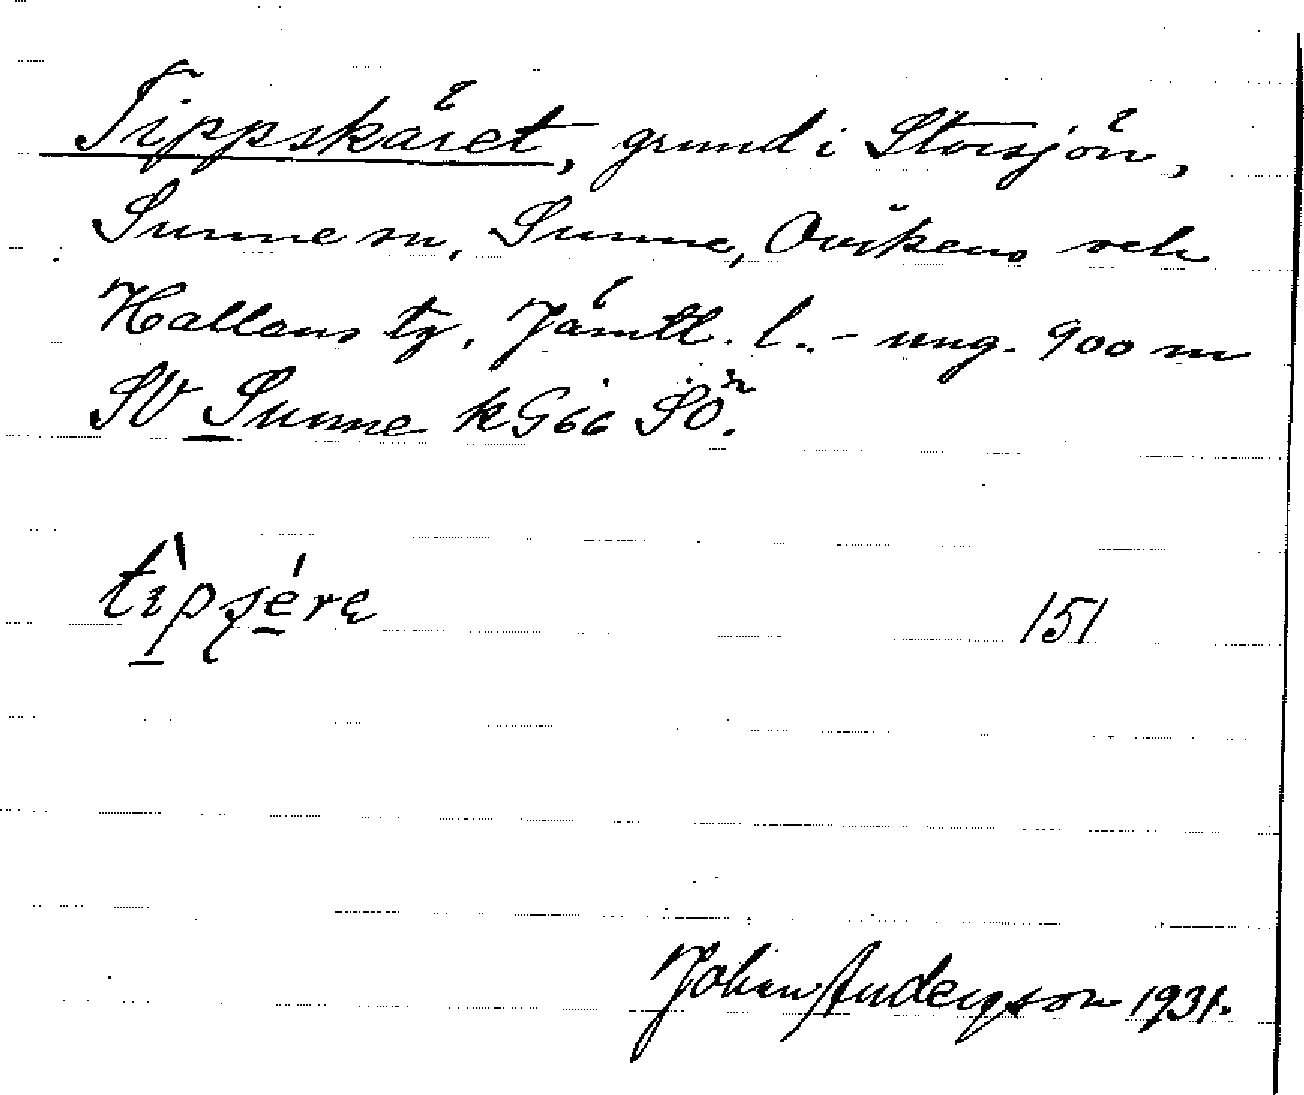 Tippskäret, grund i Storsjön,
Sunne sn, Sunne, Ovikens och
Hallens tg, Jämtl. l. - ung. 900 m
SV Sunne k G66 SÖ.
151
Johan Anderson 1931.